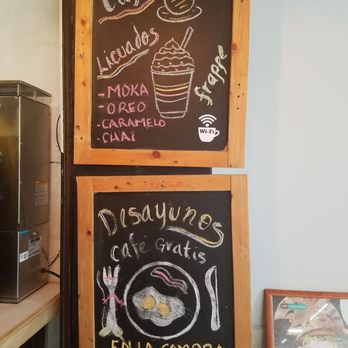 Licuados
frappe
-MOKA
-OREO
-CARAMELO
-CHAI
Wi-Fi
Desayunos
Café Gratis
EN LA COMPRA